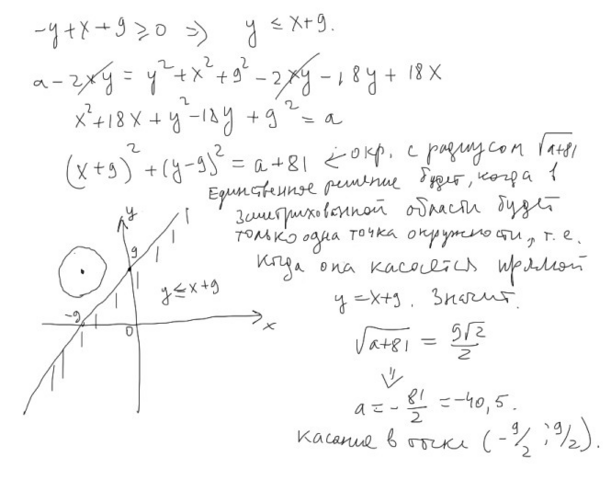 -y+x+9≥0 ⇒ y ≤ x+9.
a-2xy = y²+x²+9²-2xy-18y+18x
x²+18x+y²-18y+9²=a
(x+9)²+(y-9)²=a+81 ← окр. с радиусом √a+81
Единственное решение будет, когда в
заштрихованной области будет
только одна точка окружности, т.е.
когда она касается прямой
y=x+9. Значит.
√a+81 = 9√2/2
⇓
a=-81/2=-40,5.
касание в точке (-9/2; 9/2).
y
9
y≤x+9
-9
0
x